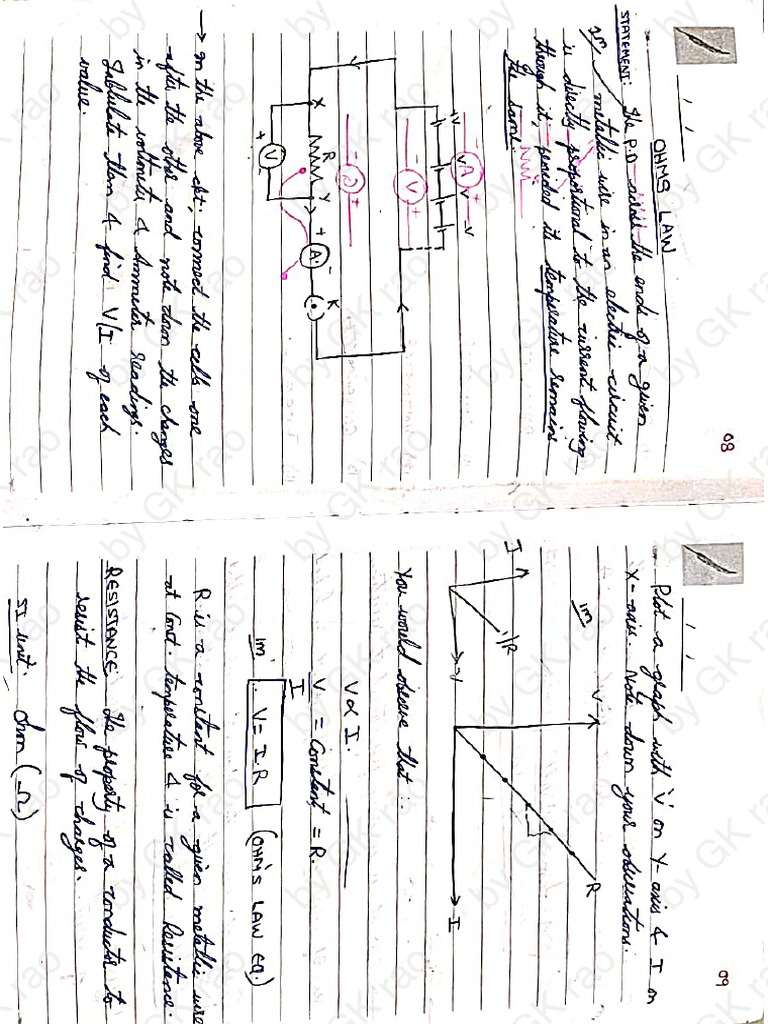 08
OHMS LAW
STATEMENT: The P.D across the ends of a given
1m metallic wire in an electric circuit
is directly proportional to the current flowing
through it; provided its temperature remains
the same.
- A +
V V V V
- V +
- A +
X R Y + A - K
+ V -
→ In the above ckt; connect the cells one
after the other and note down the changes
in the voltmeter & Ammeter readings.
Tabulate them & find V/I of each
value.
09
Plot a graph with 'V' on Y-axis & I on
X-axis. Note down your observations.
1m
V R
I 1/R
V I
You would observe that:
V∝I.
V = Constant = R.
I
1m ∴ V = I.R (OHM'S LAW EQ.)
R is a constant for a given metallic wire
at const temperature & is called Resistance.
RESISTANCE: The property of a conductor to
resist the flow of charges.
SI unit: Ohm (Ω)
by GK rao